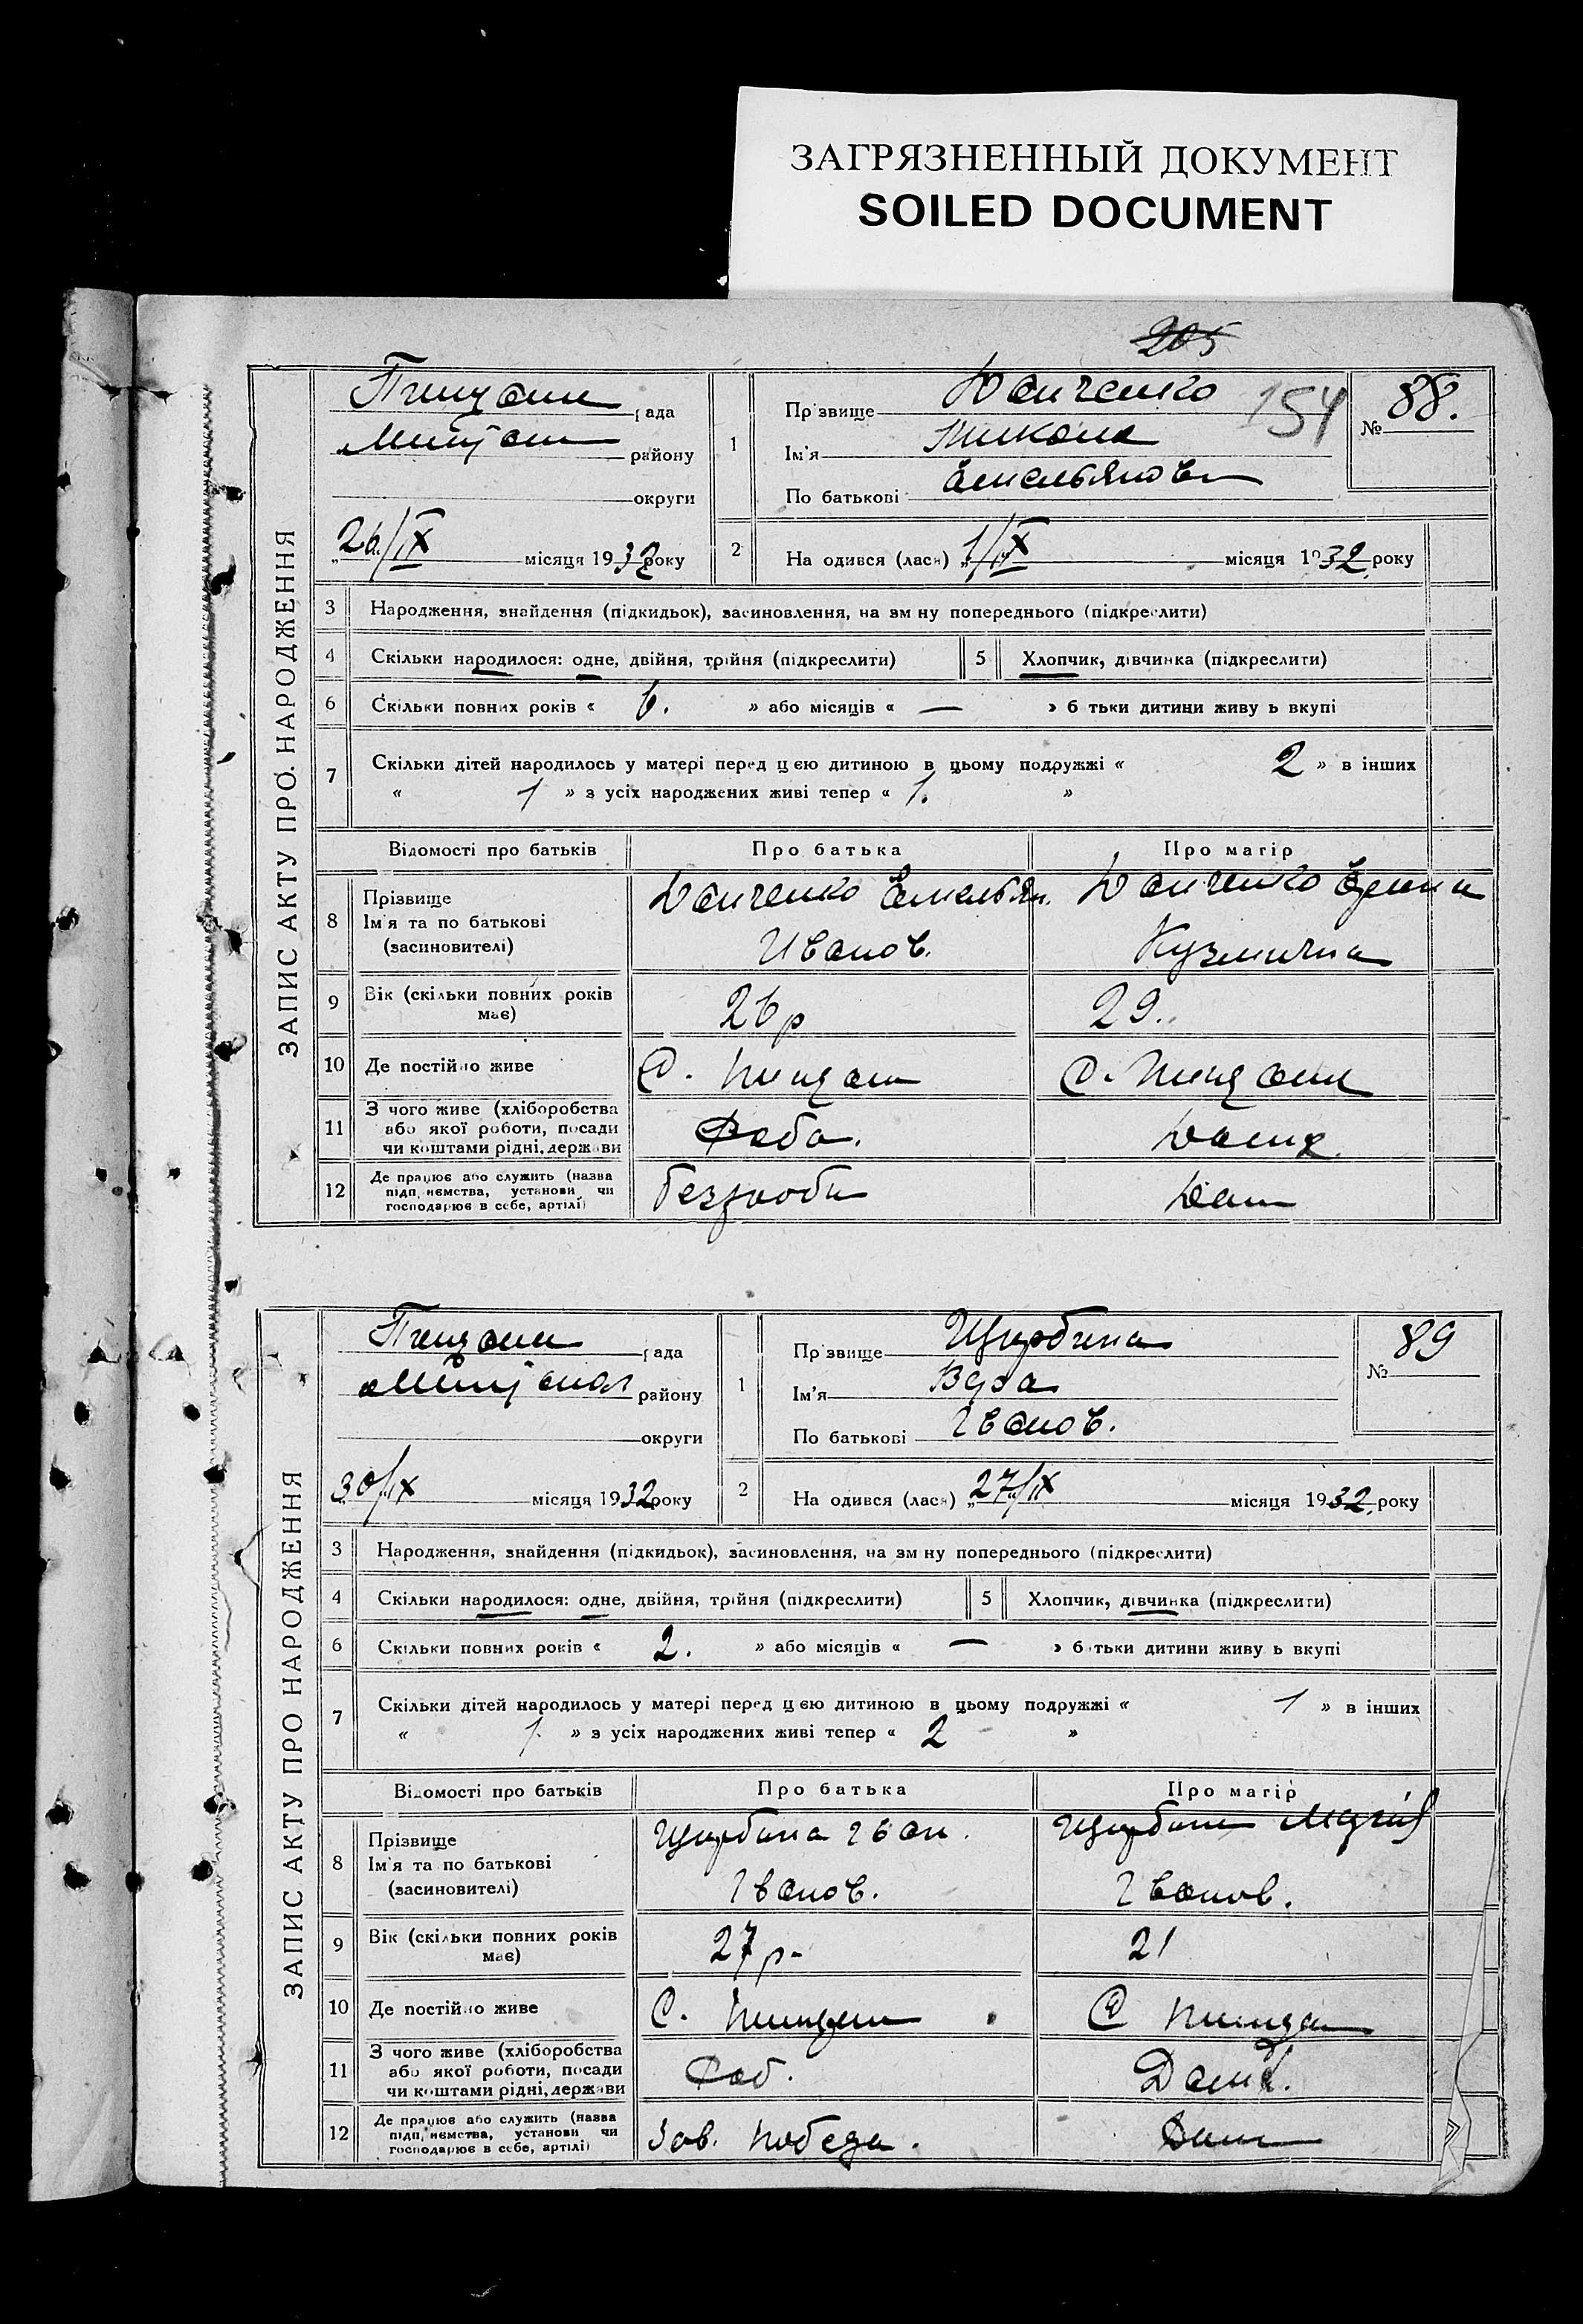 ЗАГРЯЗНЕННЫЙ ДОКУМЕНТ
SOILED DOCUMENT
205
154
ЗАПИС АКТУ ПРО НАРОДЖЕННЯ
рада
району
округи
26/IX місяця 1932 року
1
Прізвище
Ім'я Микола
По батькові Емельянов
№ 88.
2
На одився (лася) 1/IX місяця 1932 року
3 Народження, знайдення (підкидьок), засиновлення, на зм ну попереднього (підкреслити)
4 Скільки народилося: одне, двійня, трійня (підкреслити) 5 Хлопчик, дівчинка (підкреслити)
6 Скільки повних років « 6. » або місяців « — » б тьки дитини живу ь вкупі
7 Скільки дітей народилось у матері перед цією дитиною в цьому подружжі « 2 » в інших
« 1 » з усіх народжених живі тепер « 1. »
Відомості про батьків Про батька Про матір
8 Прізвище
Ім'я та по батькові
(засиновителі)
Емельян.
Иванов.
Кузмична
9 Вік (скільки повних років має) 26 р 29.
10 Де постійно живе С. С.
11 З чого живе (хліборобства
або якої роботи, посади
чи коштами рідні, держави
Роба.
12 Де працює або служить (назва
підприємства, установи чи
господарює в себе, артілі)
безработн
ЗАПИС АКТУ ПРО НАРОДЖЕННЯ
рада
району
округи
30/IX місяця 1932 року
1
Прізвище Щербина
Ім'я Вера
По батькові Іванов.
№ 89
2
На одився (лася) 27/IX місяця 1932 року
3 Народження, знайдення (підкидьок), засиновлення, на зм ну попереднього (підкреслити)
4 Скільки народилося: одне, двійня, трійня (підкреслити) 5 Хлопчик, дівчинка (підкреслити)
6 Скільки повних років « 2. » або місяців « — » б тьки дитини живу ь вкупі
7 Скільки дітей народилось у матері перед цією дитиною в цьому подружжі « 1 » в інших
« 1. » з усіх народжених живі тепер « 2 »
Відомості про батьків Про батька Про матір
8 Прізвище
Ім'я та по батькові
(засиновителі)
Щербина Іван. Щербина Марія
Іванов. Іванов.
9 Вік (скільки повних років має) 27 р. 21
10 Де постійно живе С. С
11 З чого живе (хліборобства
або якої роботи, посади
чи коштами рідні, держави
Роб.
12 Де працює або служить (назва
підприємства, установи чи
господарює в себе, артілі)
Зав. Победа.